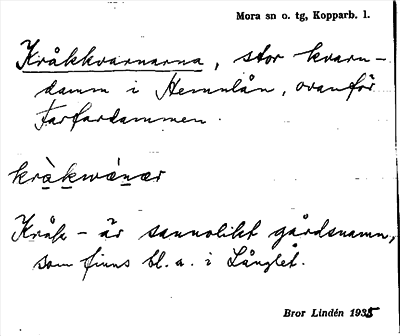 Mora sn o. tg, Kopparb. l.
Kråkkvarnarna, stor kvarn-
damm i Hemulån, ovanför
Farfardammen.
kràkwánær
Kråk- är sannolikt gårdsnamn,
som finns bl. a. i Långlet.
Bror Lindén 1935